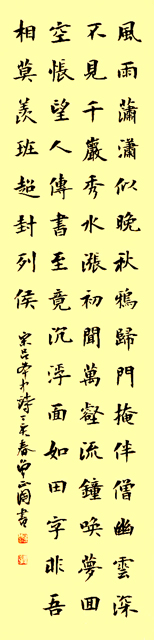 風雨蕭瀟似晚秋鴉歸門掩伴僧幽雲深
不見千巖秀水漲初聞萬壑流鐘喚夢回
空悵望人傳書至竟沉浮面如田字非吾
相莫羨班超封列侯
宋呂本中詩丁亥春書